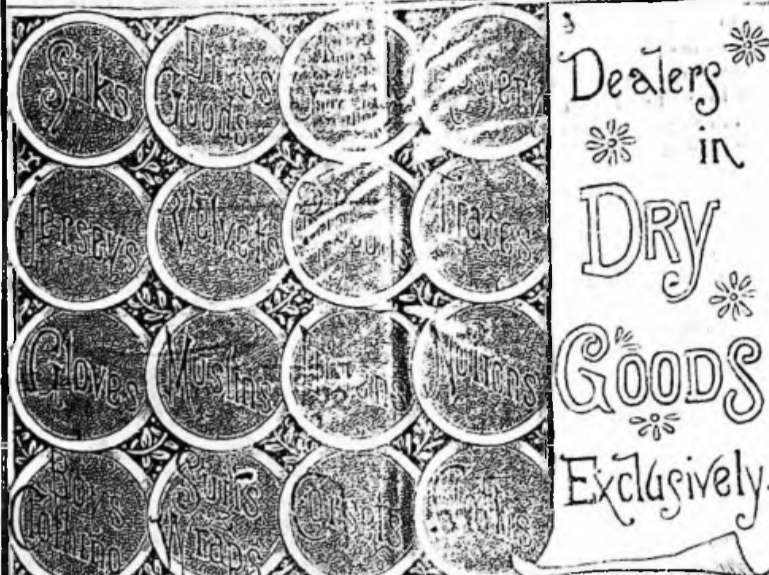 Silks
Dress
Goods
Jerseys
Velvets
Laces
Gloves
Muslins
Notions
Boys
Clothing
Suits
Wraps
Corsets
Dealers
in
DRY
GOODS
Exclusively.